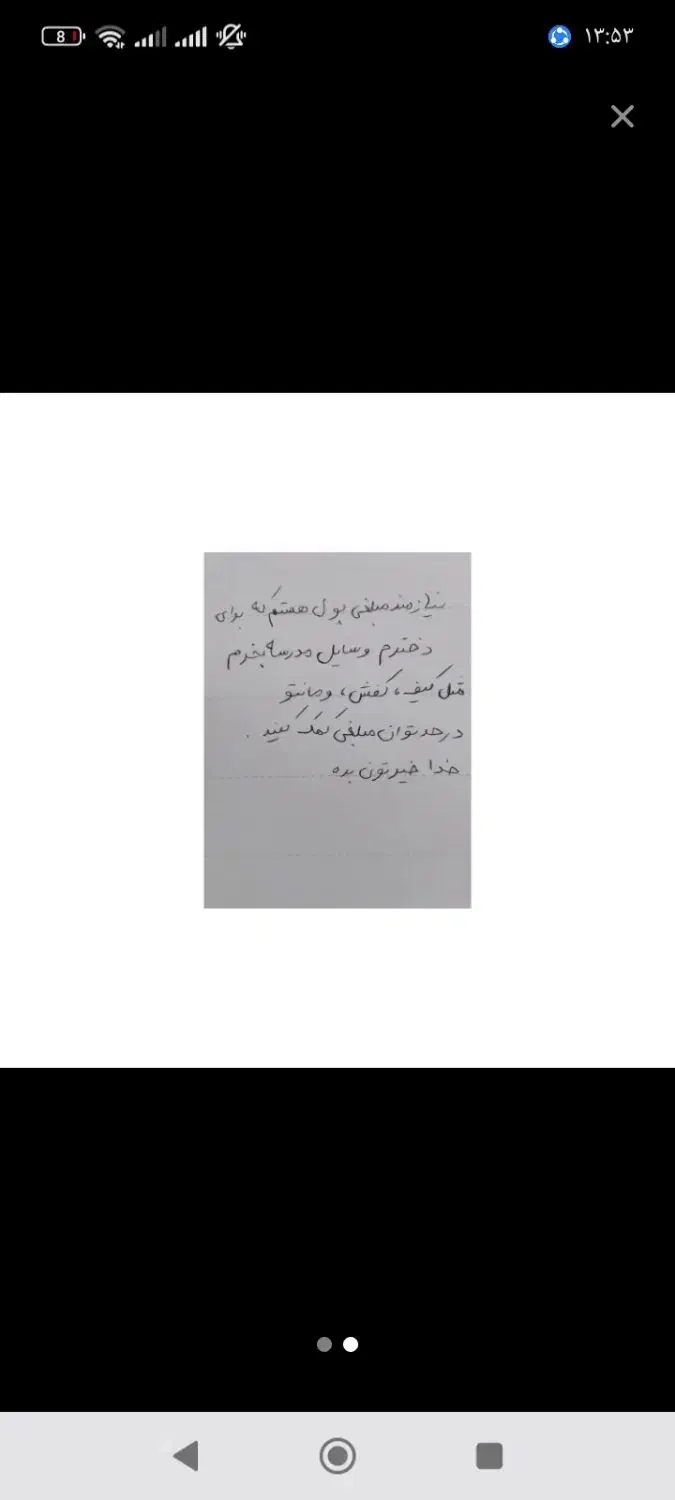 8
۱۳:۵۳
نیازمند مبلغی پول هستم که برای
دخترم وسایل مدرسه بخرم
مثل کیف، کفش، ومانتو
درحد توان مبلغی کمک کنید.
خدا خیرتون بده